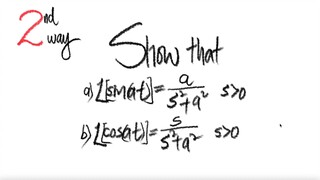 2nd way
Show that
a) L[sin(at)] = a/(s²+a²) s>0
b) L[cos(at)] = s/(s²+a²) s>0